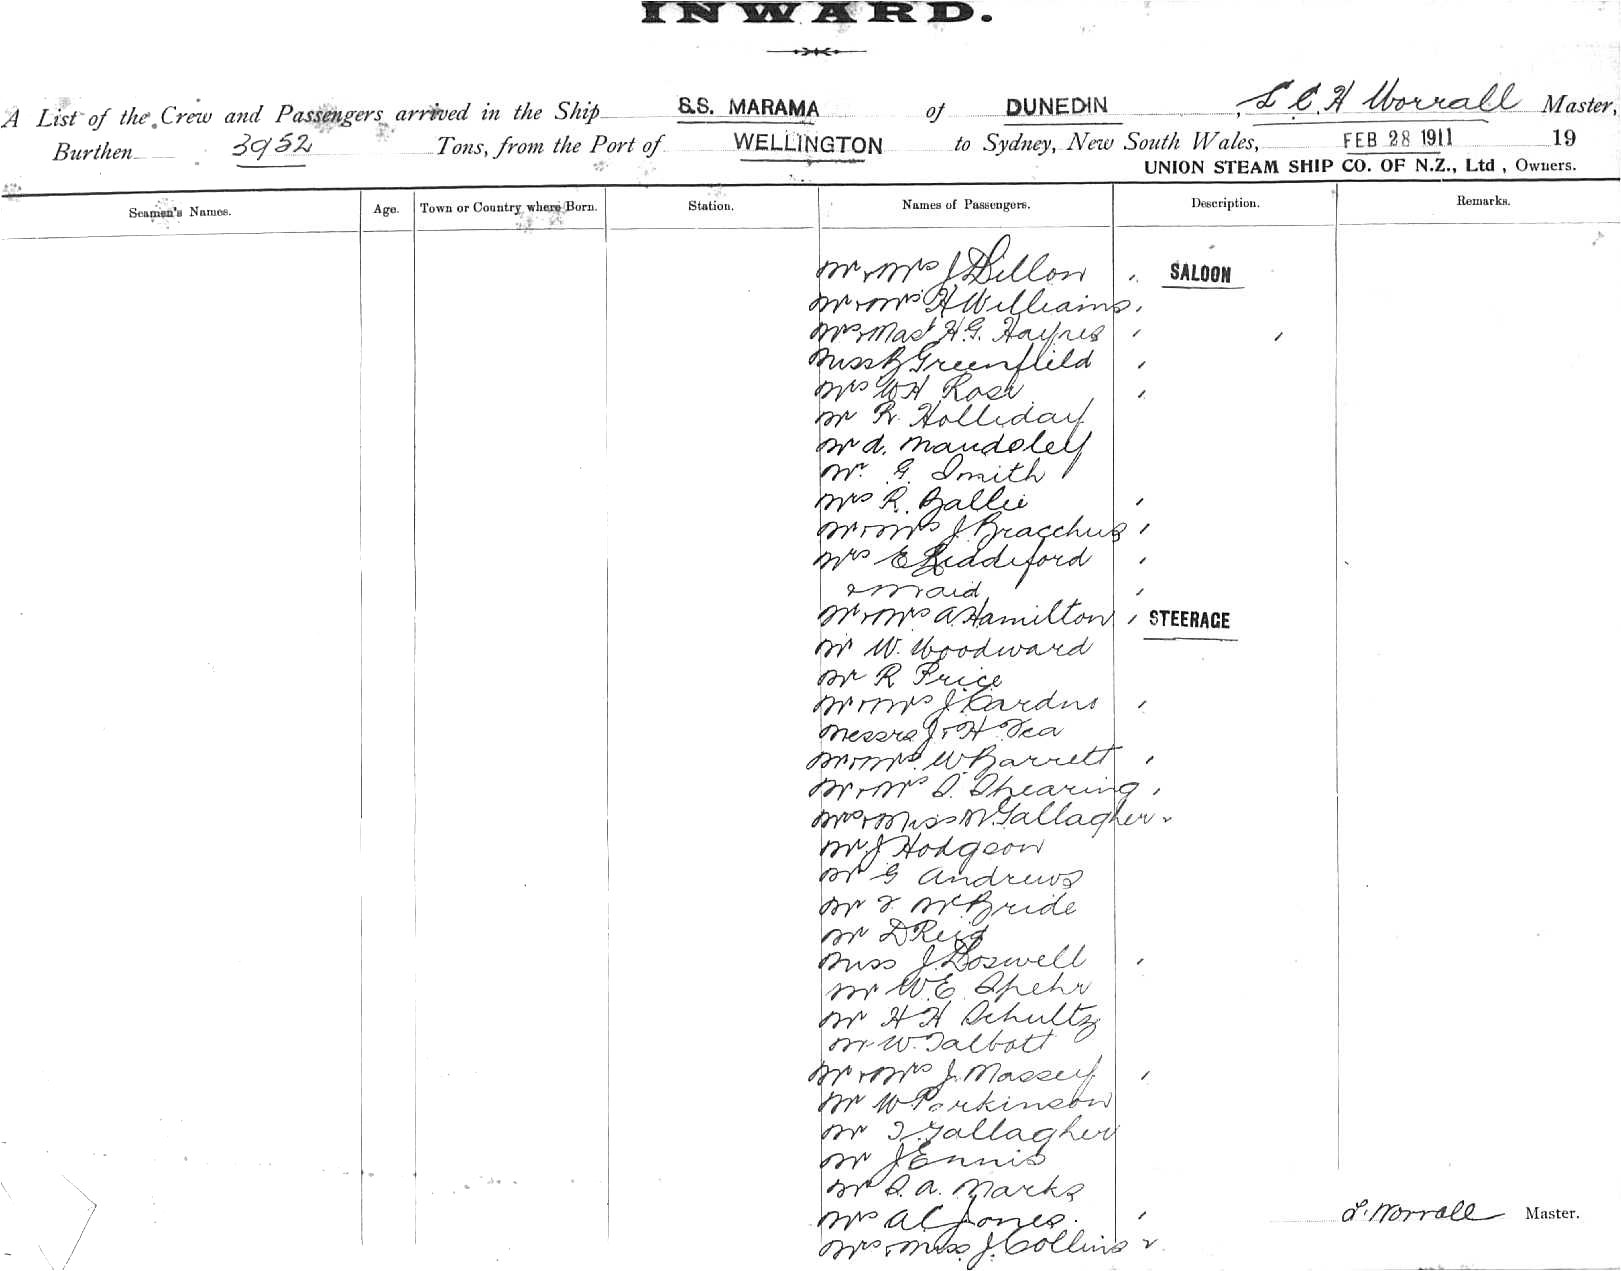 INWARD.
A List of the Crew and Passengers arrived in the Ship S.S. MARAMA of DUNEDIN, L C H Worrall Master,
Burthen 3952 Tons, from the Port of WELLINGTON to Sydney, New South Wales, FEB 28 1911 19
UNION STEAM SHIP CO. OF N.Z., Ltd, Owners.
Seamen's Names. Age. Town or Country where Born. Station. Names of Passengers. Description. Remarks.
Mr & Mrs J Dillon SALOON
Mr & Mrs H Williams
Mrs & Mast H.G. Haynes
Miss B Greenfield
Mrs W H Rose
Mr R. Holliday
Mr A. Maudsley
Mr. G. Smith
Mrs R. Ballie
Mr & Mrs J. Bracchus
Mrs E Riddiford
& maid
Mr & Mrs A. Hamilton STEERAGE
Mr W. Woodward
Mr R Price
Mr & Mrs J. Cardno
Messrs J & H Tea
Mr & Mrs. W Barrett
Mr & Mrs S. Shearing
Mrs & Miss M. Gallagher 2
Mr J Hodgson
Mr G Andrews
Mr T McBride
Mr D Reid
Miss J. Boswell
Mr W.E. Spehr
Mr H H Schultz
Mr W. Talbott
Mr & Mrs J. Massey
Mr W Parkinson
Mr T. Gallagher
Mr J Ennis
Mr S. A. Marks
Mrs A C Jones. L. Worrall Master.
Mrs & Miss. J. Collins 2